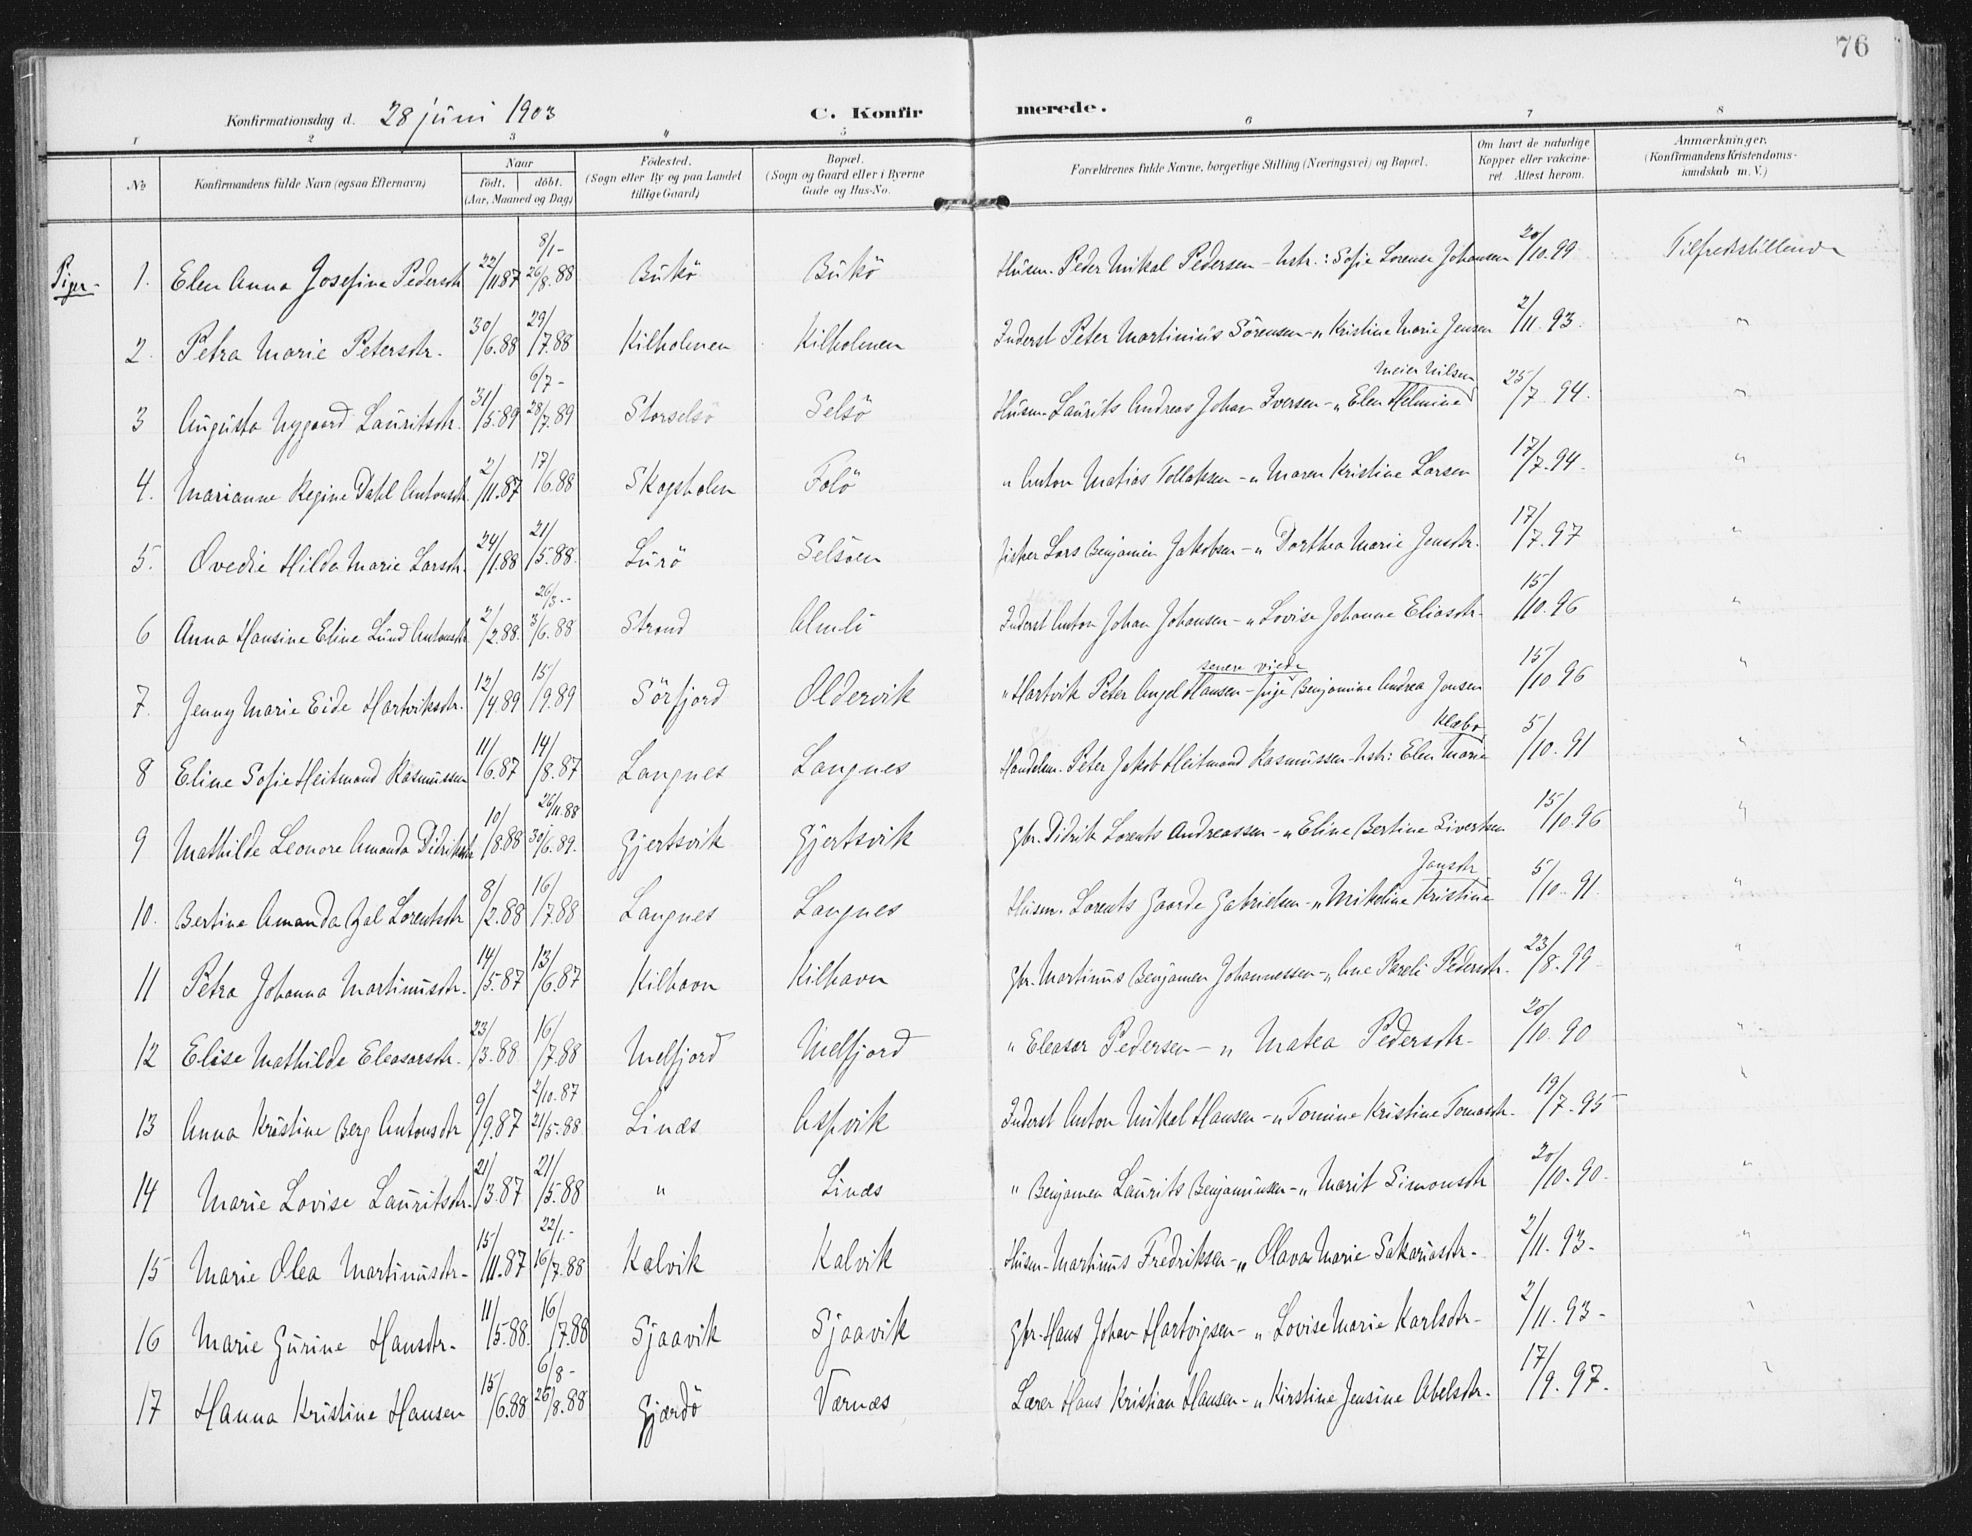 76
Konfirmationsdag d. 28 juni 1903 C. Konfirmerede.
1 2 3 " 5 6 7 8
No Konfirmandens fulde Navn (ogsaa Efternavn) Naar födt. döbt. (Aar, Maaned og Dag) Födested. (Sogn eller By og paa Landet tillige Gaard) Bopæl. (Sogn og Gaard eller i Byerne Gade og Hus-No. Forældrenes fulde Navne, borgerlige Stilling (Næringsvei) og Bopæl. Om havt de naturlige Kopper eller vakcineret. Attest herom. Anmærkninger. (Konfirmandens Kristendomskundskab m. V.)
Piger- 1. Elen Anna Josefine Pedersdtr 22/11.87 8/1- 26/8.88 Bukö Bukö Husm. Peder Mikal Pedersen - hstr.: Sofie Lorense Johansen 20/10.99 Tilfredsstillende
2. Petra Marie Petersdtr. 30/6.88 29/7.88 Kilholmen Kilholmen Inderst Peter Martinius Sörensen - " Kristine Marie Jensen 2/11.93. "
3 Augusta Nygaard Lauritsdtr. 31/5.89 6/7- 28/7.89 Storselsö Selsö Husm. Laurits Andreas Johan Iversen - " Elen Helmine Meier Nilsen 25/7.94. "
4. Marianne Regine Dahl Antonsdtr. 2/11.87 17/6.88 Skogsholm Folö " Anton Matias Tollaksen - " Maren Kristine Larsen 17/7.94. "
5. Ovedie Hilda Marie Larsdtr. 24/1.88 21/5.88. Lurö Selsöen fisker Lars Benjamin Jakobsen - " Dorthea Marie Jensdtr. 17/7.97 "
6 Anna Hansine Eline Lund Antonsdtr 2/2.88. 26/3-- 3/6.88 Strand Almli Inderst Anton Johan Johansen - " Lovise Johanne Eliasdtr. 15/10.96 "
7. Jenny Marie Eide Hartviksdtr. 12/4.89 15/9.89 Sörfjord Oldervik " Hartvik Peter Angel Hansen - pige Benjamine Andrea Jensen senere viede 15/10 96 "
8 Eline Sofie Heitmand Rasmussen 11/6.87 14/8.87 Langnes Langnes Handelsm. Peter Jakob Heitmand Rasmussen hstr: Elen Marie Klæbo 5/10.91 "
9 Mathilde Leonore Amanda Didriksdtr 10/8.88 26/11.88 30/6.89. Gjertsvik Gjertsvik Gbr. Didrik Lorents Andreassen - " Eline Bertine Sivertsen 15/10.96 "
10. Bertine Amanda Lorentsdtr 8/2.88 16/7.88 Langnes Langnes Husm. Lorents Gaarde Gabrielsen - " Mikeline Kristine Jonsdtr 5/10.91. "
11 Petra Johanna Martinusdtr. 14/5.87 13/6.87 Kilhavn Kilhavn Gbr. Martinus Benjamen Johannessen - " Ane Pareli Pedersdtr. 23/8.99 "
12 Elise Mathilde Eleasarsdtr. 23/3.88 16/7.88 Melfjord Melfjord " Eleasar Pedersen - " Matea Pedersdtr. 20/10.90 "
13 Anna Kristine Berg Antonsdtr 9/9.87 2/10.87 21/5.88 Linæs Aspvik Inderst Anton Mikal Hansen - " Tomine Kristine Tomasdtr. 19/7.95 "
14 Marie Lovise Lauritsdtr. 21/3.87 21/5.88 " Linæs " Benjamen Laurits Benjaminsen - " Marit Simonsdtr 20/10.90. "
15 Marie Olea Martinusdtr. 15/11.87 22/1.- 16/7.88 Kalvik Kalvik Husm. Martinus Fredriksen - " Olava Marie Sakariasdtr. 2/11.93. "
16 Marie Gurine Hansdtr. 11/5.88. 16/7.88 Sjaavik Sjaavik Gbr. Hans Johan Hartvigsen - " Lovise Marie Karlsdtr. 2/11.93- "
17 Hanna Kristine Hansen 15/6.88 6/8- 26/8.88 Gjærdö Værnæs Lærer Hans Kristian Hansen - " Kirstine Jensine Abelsdtr. 17/9.97. "